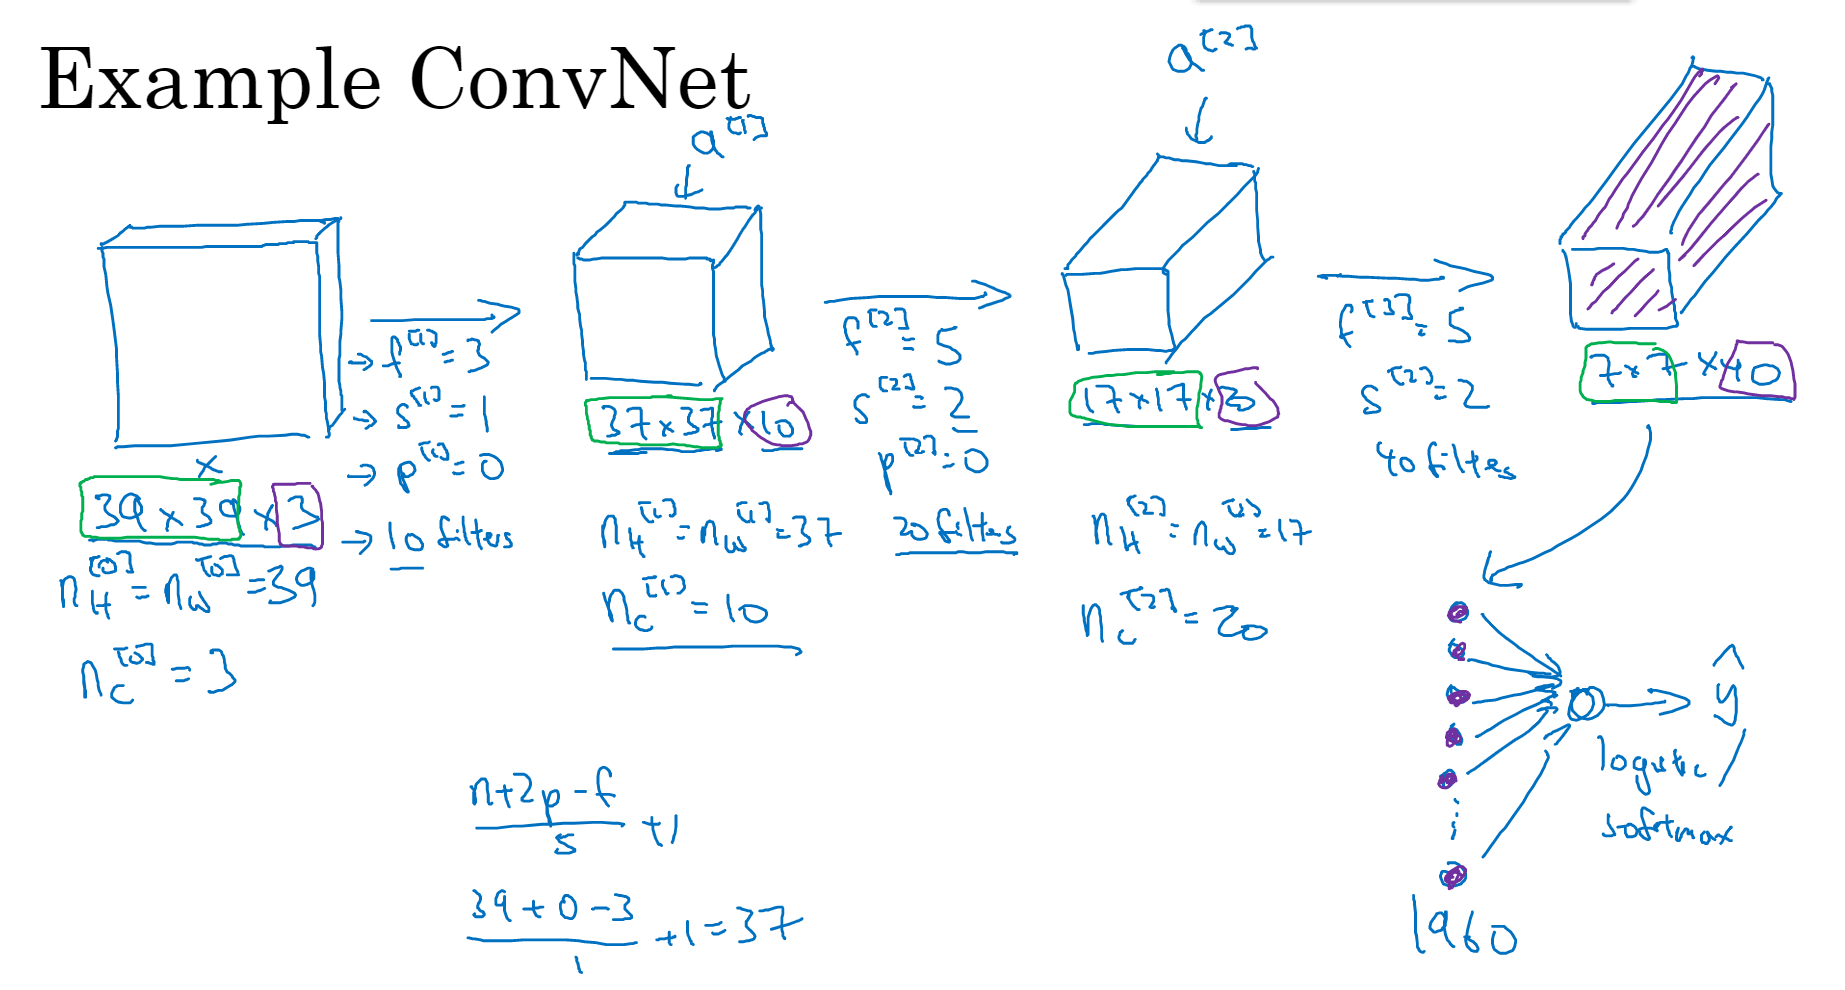 Example ConvNet
a^[1]
a^[2]
x
39 x 39 x 3
n_H^[0] = n_W^[0] = 39
n_C^[0] = 3
→ f^[1] = 3
→ s^[1] = 1
→ p^[1] = 0
→ 10 filters
37 x 37 x 10
n_H^[1] = n_W^[1] = 37
n_C^[1] = 10
f^[2] = 5
s^[2] = 2
p^[2] = 0
20 filters
17 x 17 x 20
n_H^[2] = n_W^[2] = 17
n_C^[2] = 20
f^[3] = 5
s^[2] = 2
40 filters
7 x 7 x 40
ŷ
logistic /
softmax
1960
(n+2p-f)/s +1
(39+0-3)/1 +1 = 37